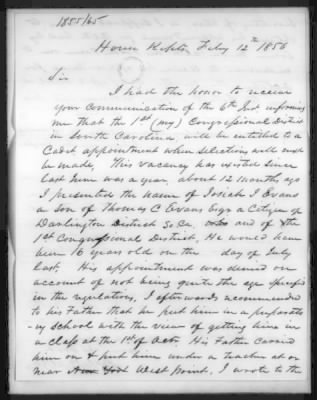 1855/65
House Repts, Feby 12th 1856
Sir
I had the honor to receive
your communication of the 6th Inst informing
me that the 1st (my) Congressional District
in South Carolina, will be entitled to a
Cadet appointment when selections will next
be made, This vacancy has existed since
last June was a year, about 12 months ago
I presented the name of Josiah I Evans
a Son of Thomas C Evans Esqr a Citizen of
Darlington District So Ca, and of the
1st Congressional District, He would have
been 16 years old on the day of July
last. His appointment was denied on
account of not being quite the age specified
in the regulations, I afterwards recommended
to his Father that he put him in a preparato
-ry school with the view of getting him in
a class at the 1st of Oct, His Father carried
him on & put him under a teacher at or
near New York West Point, I wrote to the